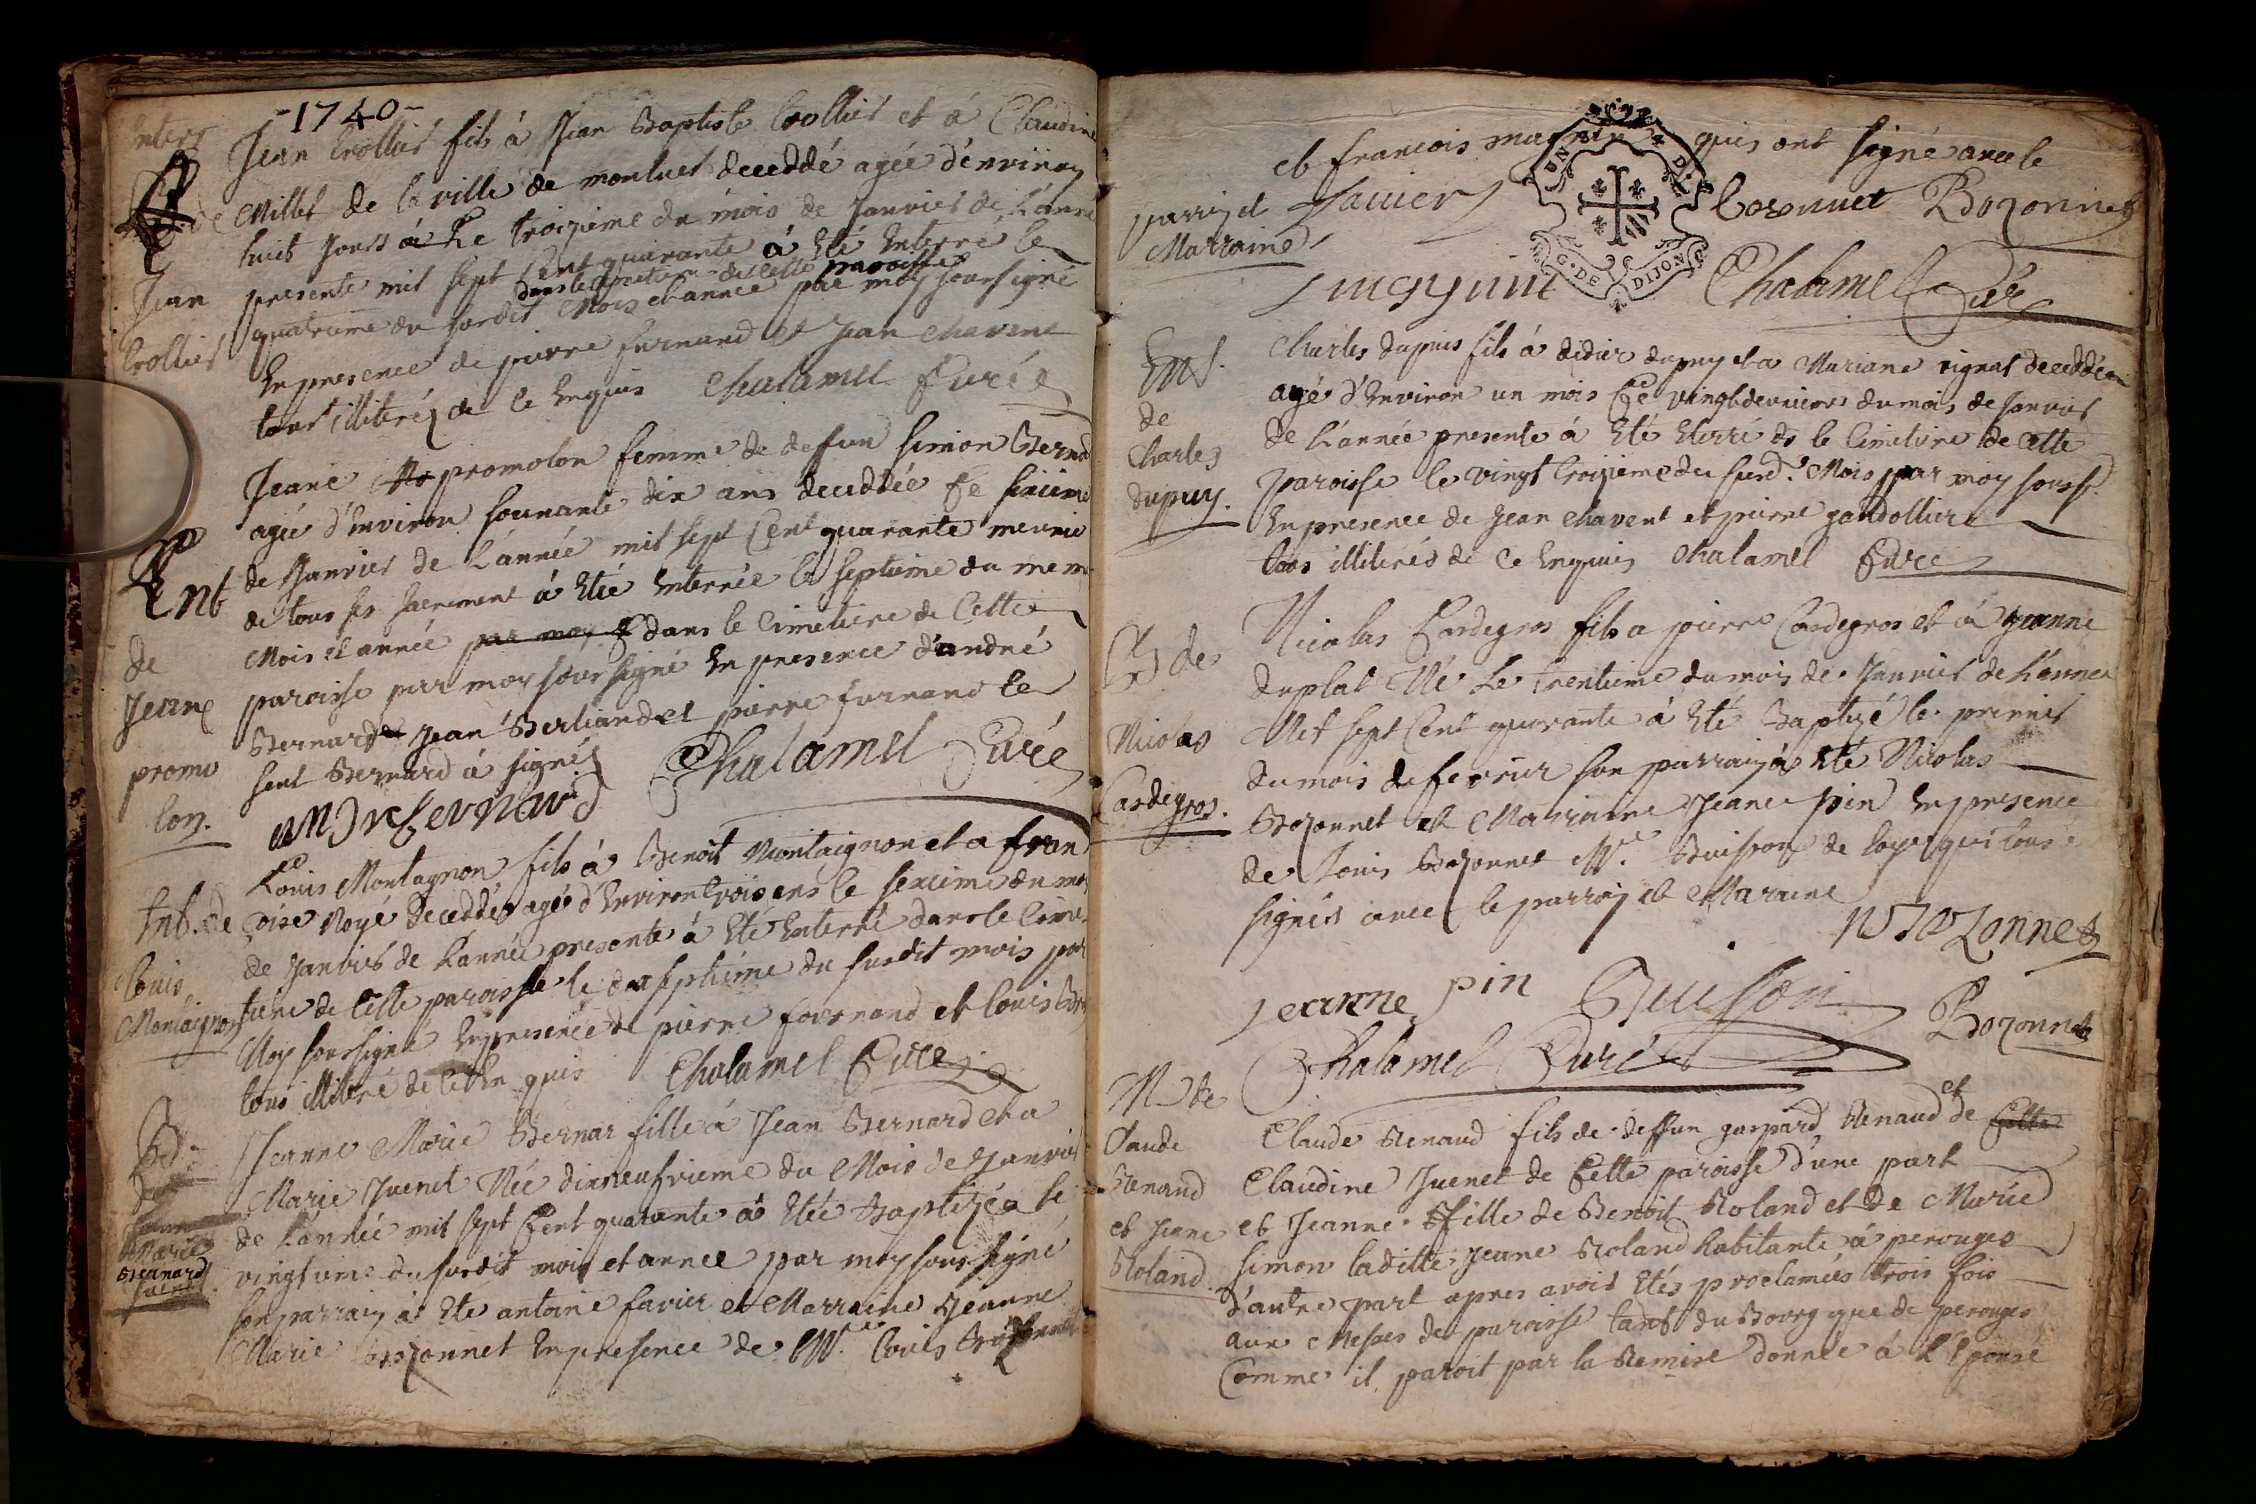 -1740-
Interr
de
Jean
Crollier
Jean Crollier fils à Jean Baptiste Crollier et à Claudine
Millet de la ville de montuel deceddé agée d'environ
huit jours à Le troizieme du mois de Janvier de L'année
presente mil sept Cent quarante à Eté Enterré le
dans le cimetiere de cette paroisse
quatrieme du susdit Mois et année par moy soussigné
En presence de pierre furnand et Jean chavent
tous illiteréz de ce Enquis Chalamel Curé
Ent
de
Jeane
promo
lon.
Jeane promolon femme de defun simon Bernard
agée d'Environ soixante dix ans deceddée Le sixieme
de Janvier de L'année mil sept Cent quarante meunie
de tous ses sacrement à Etée Enterrée le septieme du meme
Mois et année par moy dans le Cimetiere de Cette
paroisse par moy soussigné En presence d'andré
Bernard Jean Berliand et pierre furnand le
seul Bernard à signé
andre bernard Chalamel Curé
Ent. de
Louis
Montaignon
Louis Montagnon fils à Benoit Montaignon et a fran
çoise Noyé deceddé agé d'Environ trois ans le sexieme du mois
de Janvier de L'année presente à Eté Enterré dans le Cime
tiere de Cette paroisse le dix septieme du susdit mois par
Moy soussigné En presence de pierre fournand et Louis
tous illiteré de ce En quis Chalamel Curé
Bt.
de
Jeanne
Marie
Bernard
Juenet
Jeanne Marie Bernar fille à Jean Bernard et a
Marie Juenet Née dixneufvieme du Mois de Janvier
de L'année mil sept Cent quarante à Etée Baptizée le
vingtieme du susdit mois et année par moy soussigné
son parrain à Ete antoine favier et Marraine Jeanne
Marie Bozonnet En presence de Mre. Louis Bozonnet
et francois magnin quis ont signé avec le
parrin et
Marraine
favier Bozonnet Bozonnet
magnin Chalamel Curé
UN D.
G. DE DIJON
Ent.
de
Charles
dupuy.
Charles dupuis fils à didier dupuy et a Mariane rignat deceddé
agé d'Environ un mois Le vingt deuxieme du mois de Janvier
de L'année presente à Eté Eterré ds le Cimetiere de Cette
paroisse le vingt troizieme du susd. Mois par moy souss.
En presence de Jean chavent et pierre gandollier
tous illiterés de Ce Enquis Chalamel Curé
Bt de
Nicolas
Cardegros.
Nicolas Cardegros fils a pierre Cardegros et à Jeanne
duplat Né Le trentieme du mois de Janvier de L'année
Mil sept Cent quarante à Eté Baptizé le premier
du mois de fevrier son parrain à Eté Nicolas
Bozonnet et Marraine Jeane pin En presence
de Louis Bozonnet Mre. Buisson de loyes qui tous
signés avec le parrain et Maraine
N Bozonnet
Jeanne pin Buisson Bozonnet
Chalamel Curé
M de
Claude
Renaud
et Jeane
Roland
Claude Renaud fils de deffun gaspard Renaud et de Cette
Claudine Juenet de Cette paroisse d'une part
et Jeanne fille de Benoit Roland et de Marie
simon laditte Jeane Roland habitante à perouges
d'autre part apres avoir Etés proclamés trois fois
aux Messes de paroisse tant du Bourg que de perouges
Comme il paroit par la Remise donnée à L'Epousé